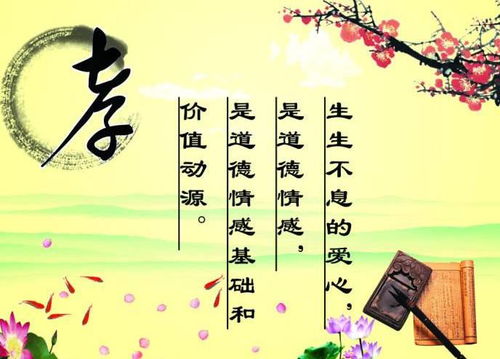 孝
生生不息的爱心，
是道德情感，
是道德情感基础和
价值动源。